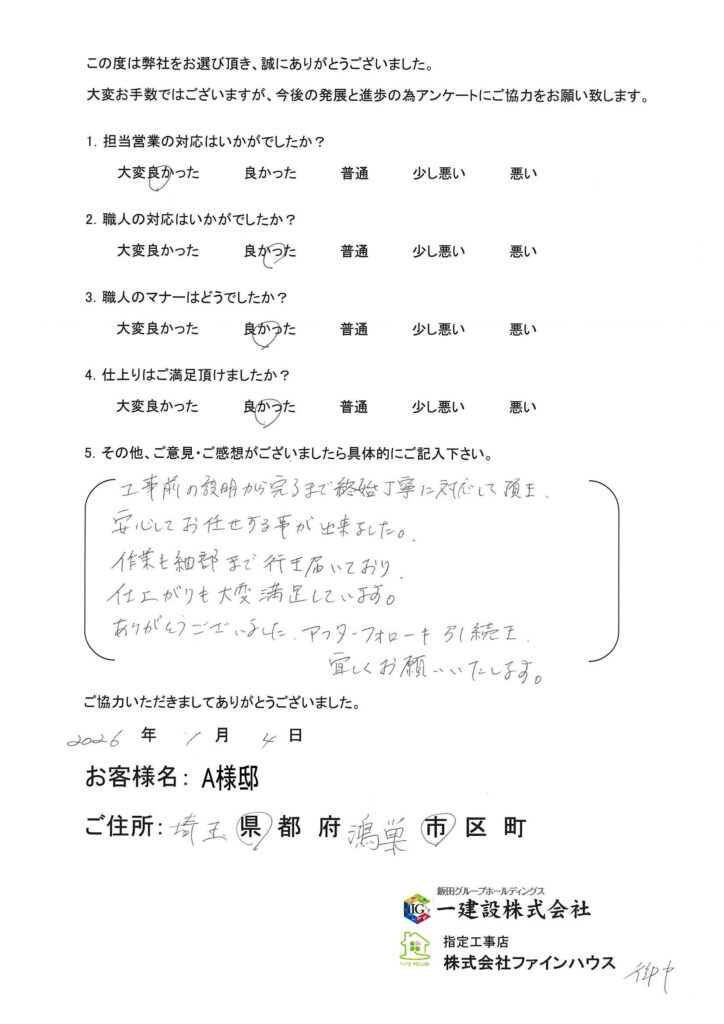 この度は弊社をお選び頂き、誠にありがとうございました。
大変お手数ではございますが、今後の発展と進歩の為アンケートにご協力をお願い致します。
1. 担当営業の対応はいかがでしたか？
大変良かった 良かった 普通 少し悪い 悪い
2. 職人の対応はいかがでしたか？
大変良かった 良かった 普通 少し悪い 悪い
3. 職人のマナーはどうでしたか？
大変良かった 良かった 普通 少し悪い 悪い
4. 仕上りはご満足頂けましたか？
大変良かった 良かった 普通 少し悪い 悪い
5. その他、ご意見・ご感想がございましたら具体的にご記入下さい。
工事前の説明から完了まで終始丁寧に対応して頂き、
安心してお任せする事が出来ました。
作業も細部まで行き届いており、
仕上がりも大変満足しています。
ありがとうございました。アフターフォローも引続き、
宜しくお願いいたします。
ご協力いただきましてありがとうございました。
2026 年 1 月 4 日
お客様名： A様邸
ご住所： 埼玉 県 都 府 鴻巣 市 区 町
飯田グループホールディングス
IG 一建設株式会社
指定工事店
Fine House 株式会社ファインハウス 御中